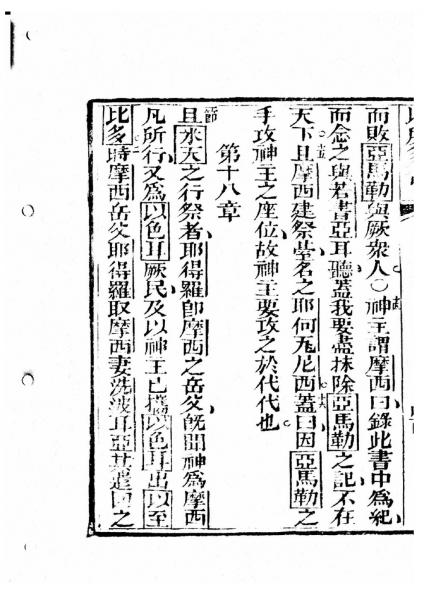 而敗亞馬勒與厥衆人○神主謂摩西曰錄此書中為紀
而念之與若書亞耳聽蓋我要盡抹除亞馬勒之記不在
天下且摩西建祭臺名之耶何瓦尼西蓋曰因亞馬勒之
手攻神主之座位故神主要攻之於代代也
第十八章
節且米天之行祭者耶得羅即摩西之岳父旣聞神為摩西
凡所行又為以色耳厥民及以神主已攜以色耳出以至
比多二時摩西岳父耶得羅取摩西妻洗波耳亞其遣回之